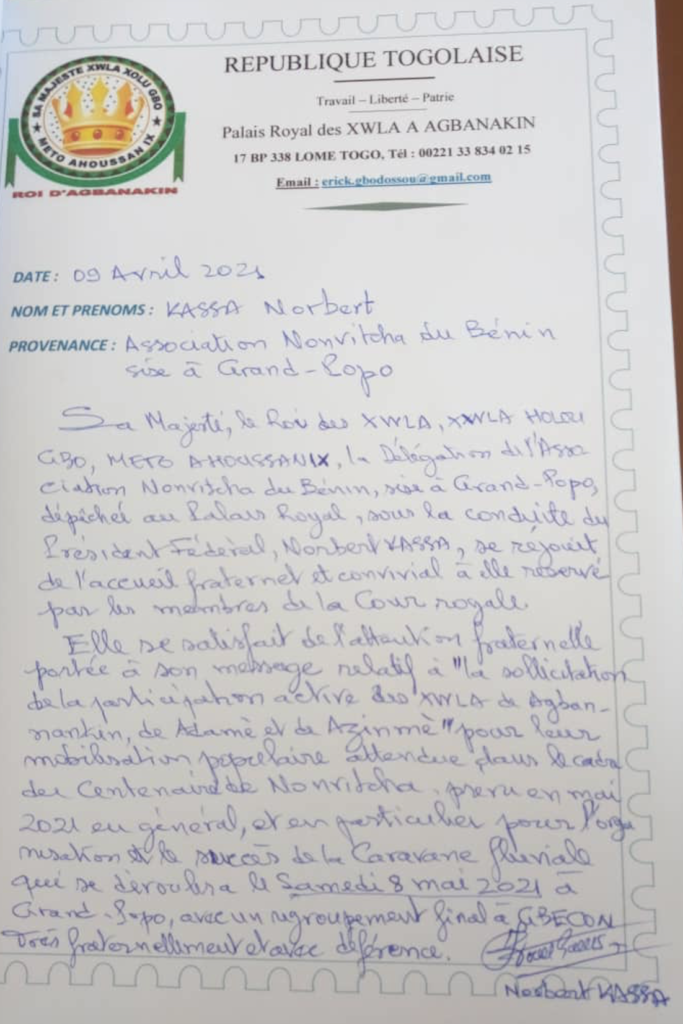 SA MAJESTE XWLA XOLU GBO
METO AHOUSSAN IX
ROI D'AGBANAKIN
REPUBLIQUE TOGOLAISE
Travail – Liberté – Patrie
Palais Royal des XWLA A AGBANAKIN
17 BP 338 LOME TOGO, Tél : 00221 33 834 02 15
Email : erick.gbodossou@gmail.com
DATE : 09 Avril 2021
NOM ET PRENOMS : KASSA Norbert
PROVENANCE : Association Nonvitcha du Bénin
sise à Grand-Popo
Sa Majesté, le Roi des XWLA, XWLA HOLOU
GBO, METO AHOUSSANIX, la Délégation de l'Asso
ciation Nonvitcha du Bénin, sise à Grand-Popo,
dépêchée au Palais Royal, sous la conduite du
Président Fédéral, Norbert KASSA, se réjouit
de l'accueil fraternel et convivial à elle réservé
par les membres de la Cour royale.
Elle se satisfait de l'attention fraternelle
portée à son message relatif à "la sollicitation
de la participation active des XWLA de Agban-
nankin, de Adamè et de Azinmè" pour leur
mobilisation populaire attendue dans le cadre
du Centenaire de Nonvitcha, prévu en mai
2021 en général, et en particulier pour l'orga
nisation et le succès de la Caravane fluviale
qui se déroulera le Samedi 8 mai 2021 à
Grand-Popo, avec un regroupement final à GBECON
Très fraternellement et avec déférence.
Norbert KASSA